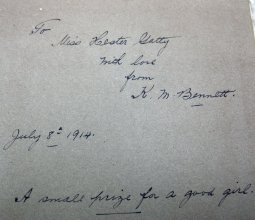 To
Miss Hester Gatty
With love
from
K. M. Bennett.
July 8th 1914.
A small prize for a good girl.